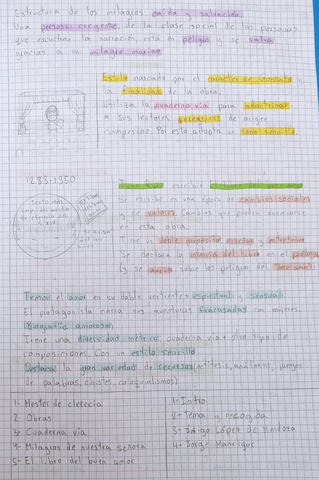 Estructura de los milagros caída y salvación
Una persona exigente, de la clase social de las personas
que escuchan la narración está en peligro y se salva
gracias a un milagro mariano
Estilo marcado por el caracter de
y la finalidad de la obra.
Utiliza la cuaderna vía para adoctrinar
a sus lectores peregrinos de origen
campesino. Por esto adopta un tono sencillo.
1283-1350
Juan R. escribió El libro
Se escribió en una época de cambios sociales
y de valores. Cambios que pueden encontrarse
en esta obra.
Tiene un doble propósito enseñar y entretener
Se declara la intensa del libro en el prólogo
(y se avisa sobre los peligros del loco amor)
Tema: el amor en su doble vertientes espiritual y sensual.
El protagonista narra sus aventuras fracasadas con mujeres.
(Biografía amorosa)
Tiene una diversidad métrica: cuaderna vía + otro tipo de
composiciones. Con un estilo sencillo
Destaca la gran variedad de recursos (mítesis, anáfora, juegos
de palabras, chistes, coloquialismos)
1- Mester de clerecía
2- Obras
3- Cuaderna vía
4- Milagros de nuestra señora
5- El libro del buen amor
1- Intro
2- Tema y recogida
3- Iñigo López de Mendoza
4- Jorge Manrique